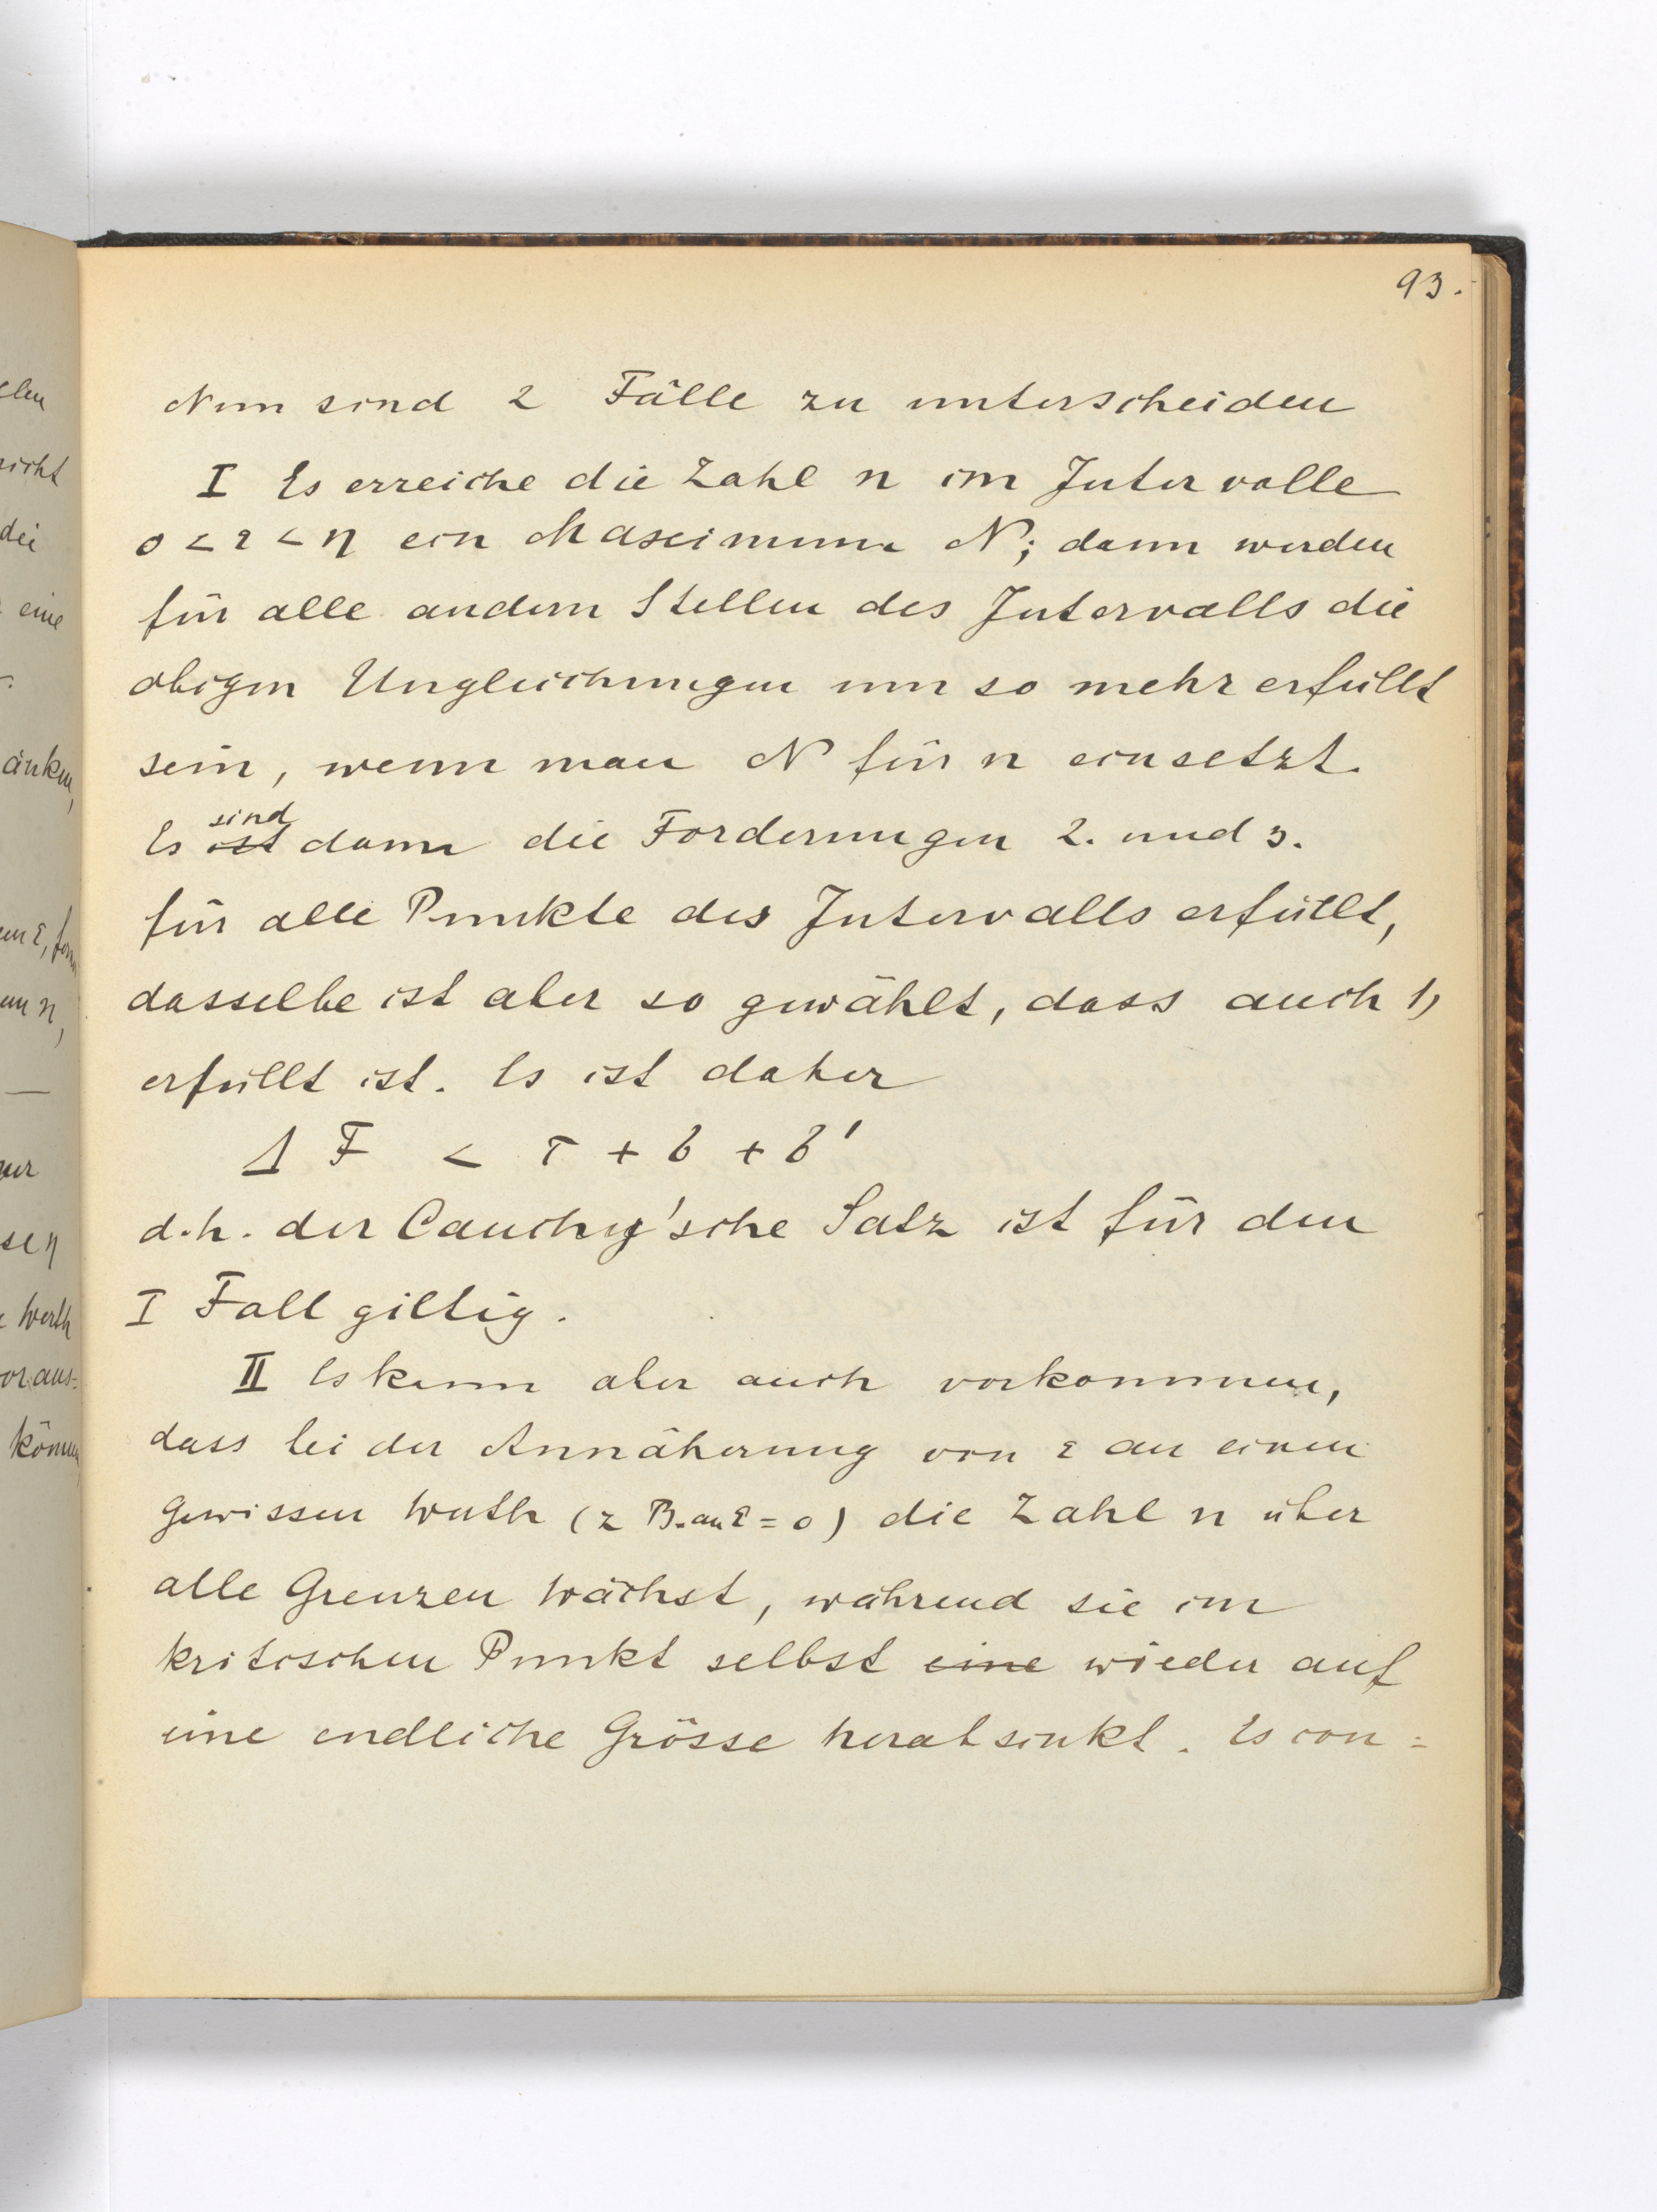 93.
Nun sind 2 Fälle zu unterscheiden
I Es erreiche die Zahl n im Intervalle
0 < ε < η ein Maximum N; dann werden
für alle andern Stellen des Intervalls die
obigen Ungleichungen um so mehr erfüllt
sein, wenn man N für n einsetzt.
sind
Es ist dann die Forderungen 2. und 3.
für alle Punkte des Intervalls erfüllt,
dasselbe ist aber so gewählt, dass auch 1)
erfüllt ist. Es ist daher
Δ F < τ + σ + σ'
d.h. der Cauchy'sche Satz ist für den
I Fall giltig.
II Es kann aber auch vorkommen,
dass bei der Annäherung von ε an einen
gewissen Werth (z B. an ε = 0) die Zahl n über
alle Grenzen wächst, während sie im
kritischen Punkt selbst eine wieder auf
eine endliche Grösse herabsinkt. Es con=
sicht
dei
eine
änken,
um n,
se η
Werth
voraus=